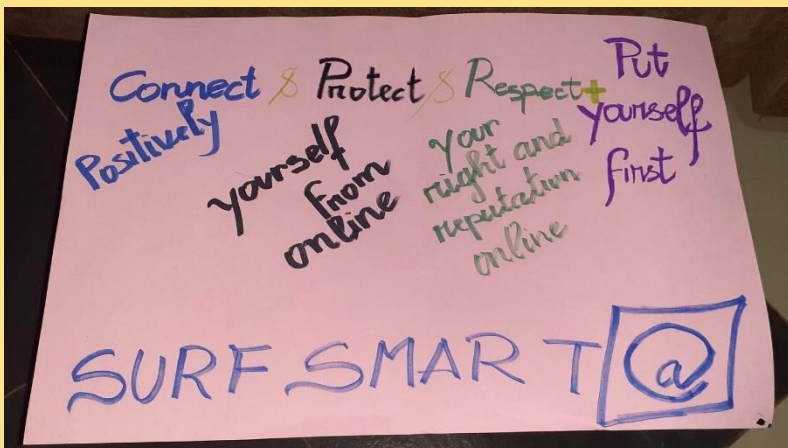 Connect & Protect & Respect +
Positively
yourself
from
online
your
right and
reputation
online
Put
yourself
first
SURF SMART @